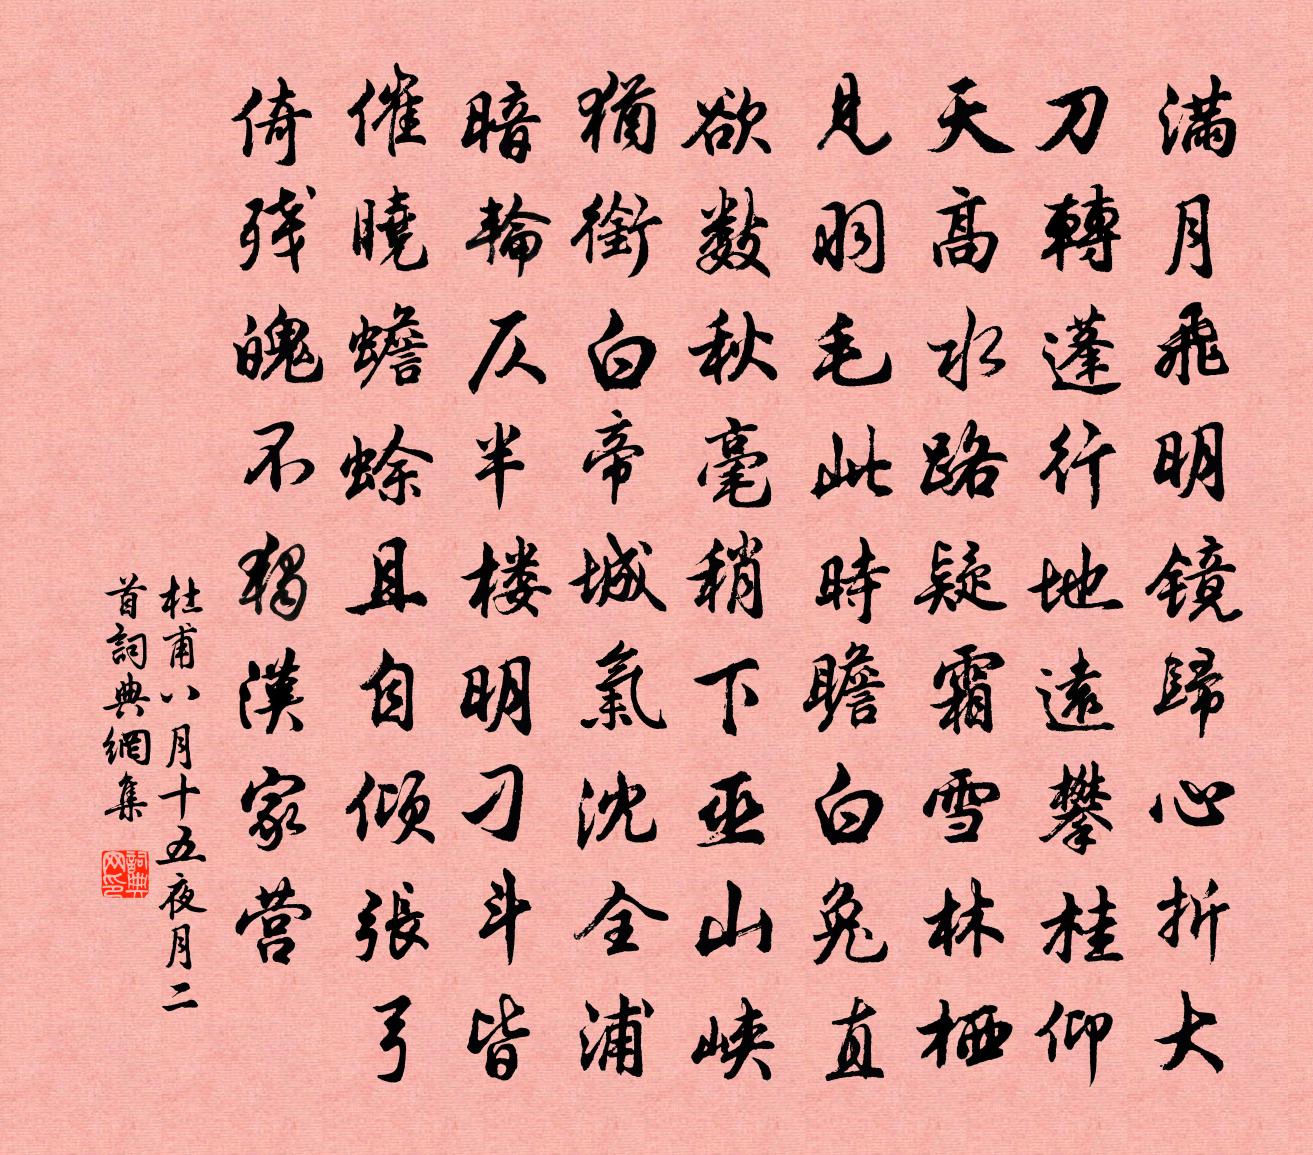 满月飛明镜歸心折大
刀轉蓬行地遠攀桂仰
天高水路疑霜雪林栖
見羽毛此時瞻白兔直
欲數秋毫稍下巫山峽
猶銜白帝城氣沈全浦
暗輪仄半楼明刁斗皆
催曉蟾蜍且自倾張弓
倚残魄不獨漢家营
杜甫八月十五夜月二
首詞典網集
詞典网印